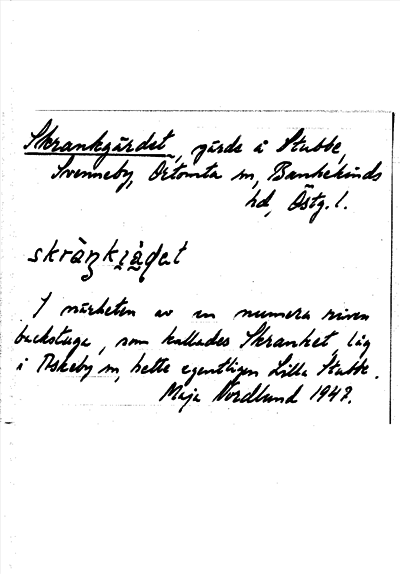 Skrankgärdet, gärde å Stubbe,
Svenneby, Örtomta sn, Bankekinds
hd, Östg. l.
skràŋkjä̀ḍet
I närheten av en numera riven
backstuga, som kallades Skranket, låg
i Askeby sn, hette egentligen Lilla Stubbe.
Maja Nordlund 1947.